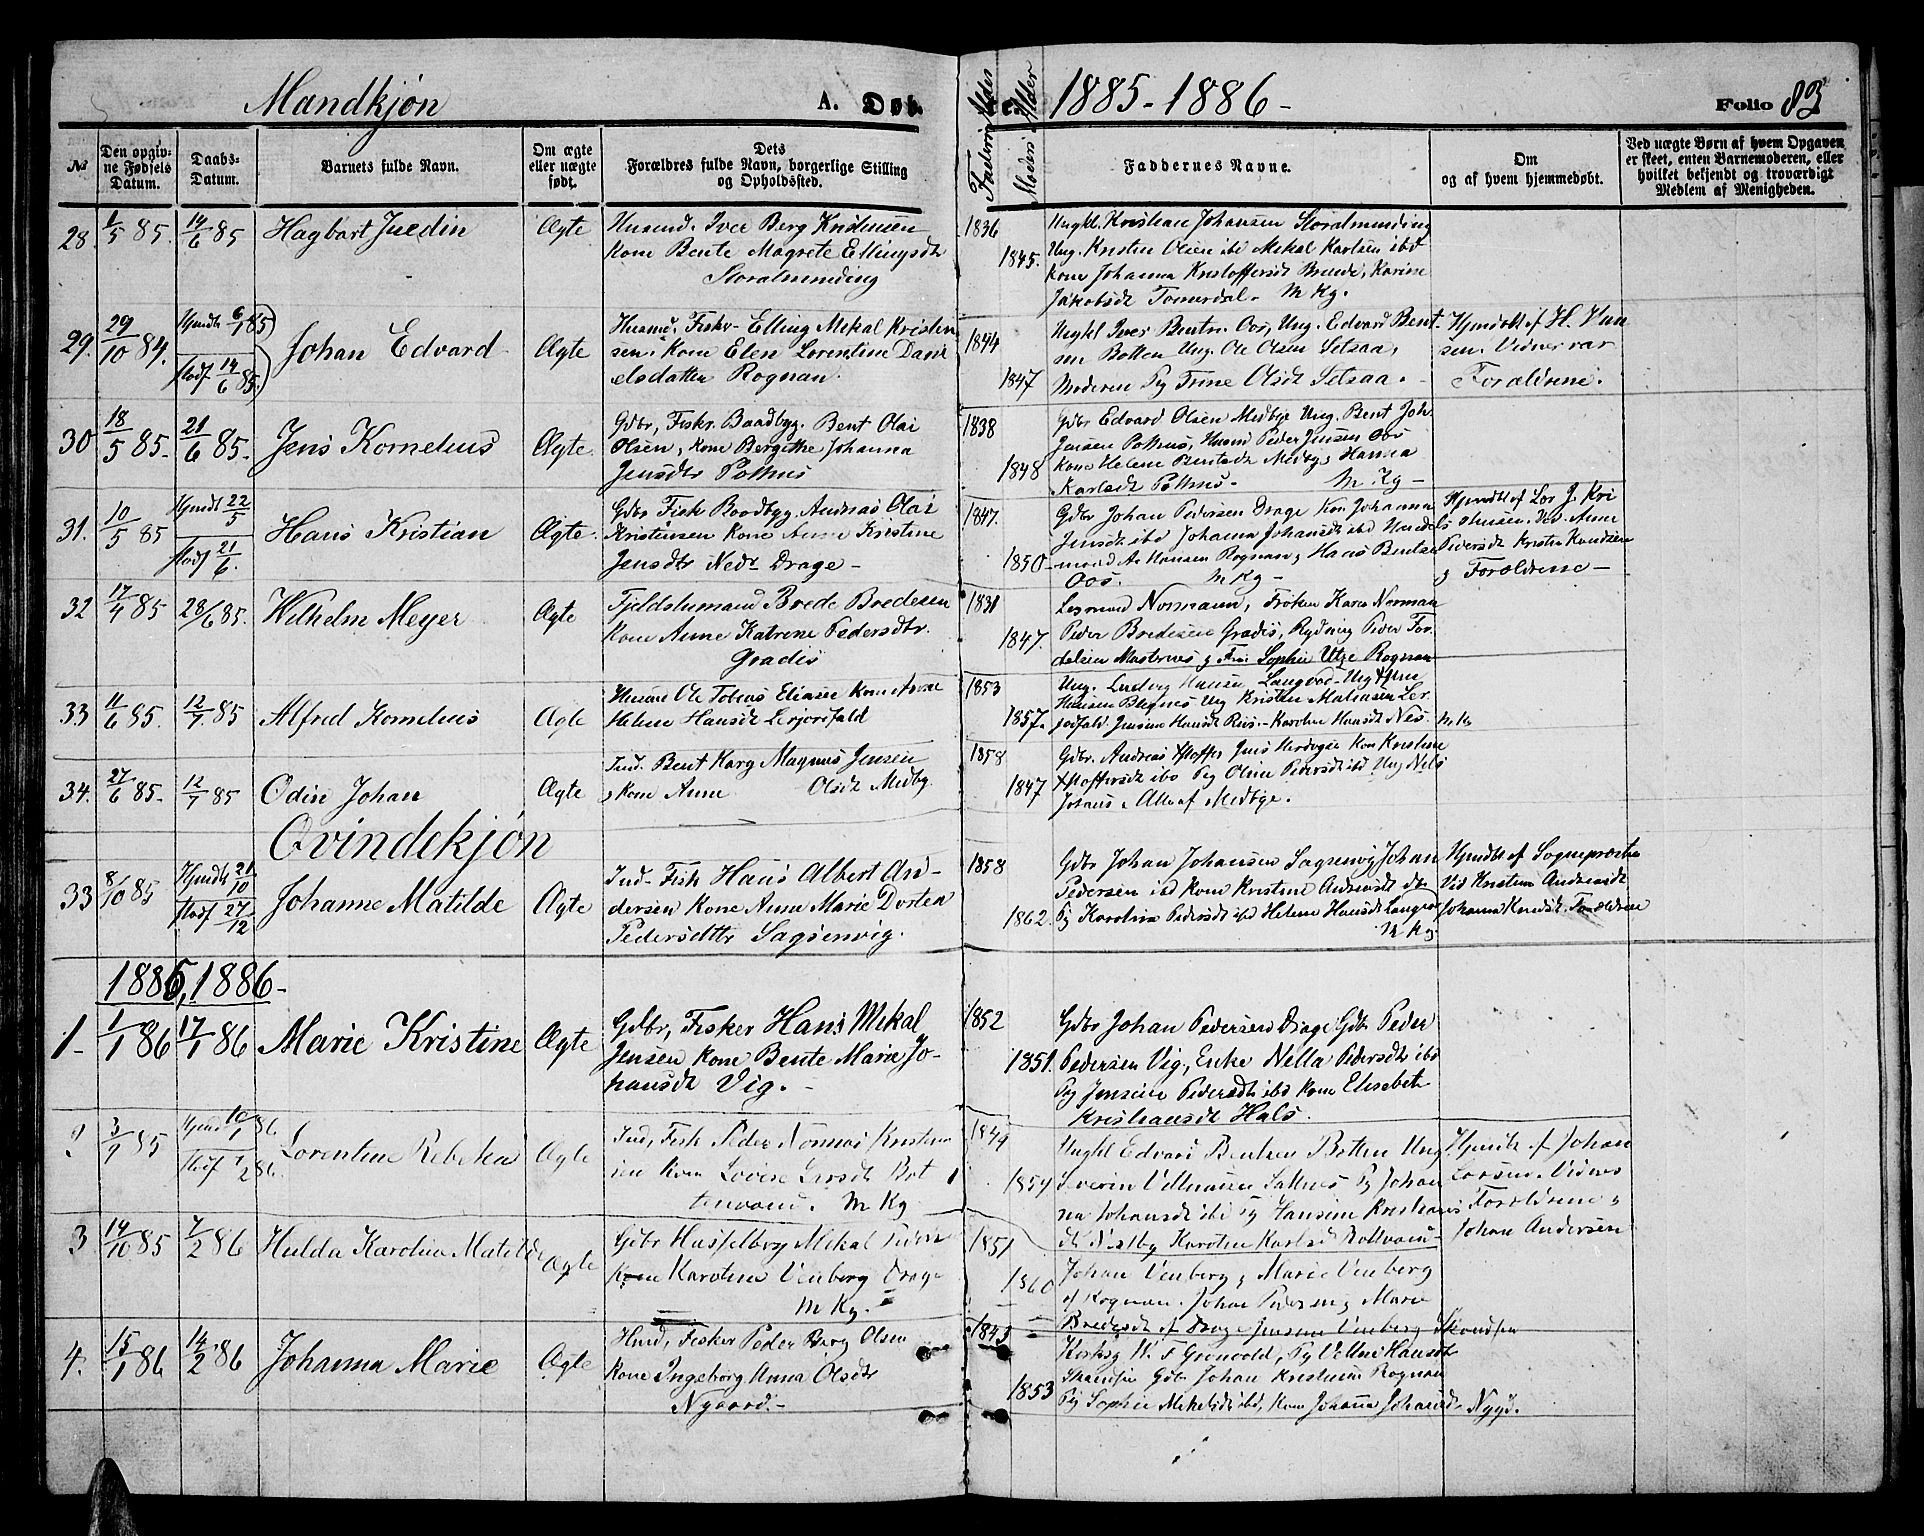 Mandkjøn A. Døbte 1885-1886- Folio 83
№ Den opgivne Fødsels Datum. Daabs-Datum. Barnets fulde Navn. Om ægte eller uægte født. Dets Forældres fulde Navn, borgerlige Stilling og Opholdssted. Faderens Alder Moderens Alder Faddernes Navne. Om og af hvem hjemmedøbt. Ved uægte Børn af hvem Opgaven er skeet, enten Barnemoderen, eller hvilket bekjendt og troværdigt Medlem af Menigheden.
28. 1/5 85. 14/6 85 Hagbart Juedin Ægte
Husmd. Iver Berg Kristensen
Kone Bente Magrete Ellingsdt
Storalmending
1836
1845.
Ungkl. Kristian Johansen Storalmending
Ung. Kristen Olsen ibd Mekal Karlsen ibd
Kone Johanna Kristoffersdt Brude, Karine
Jakobsdt Tomerdal. M Kg.
29. 29/10 84. Hjmdt 6/1 85 Stadf 14/6 85. Johan Edvard Ægte
Husmd. Fisk. Elling Mekal Kristen
sen. Kone Elen Lorentine Dani
elsdatter Rognan.
1844
1847
Ungkl Iver Bents. Oos, Ung. Edvard Bent
sen Botten Ung. Ole Olsen Setsaa,
Moderen Pg Trine Olsdt Setsaa.
Hjmdøbt af H. Han
sen. Vidner var
Forældrene.
30 18/5 85. 21/6 85. Jens Kornelius Ægte.
Gdbr, Fiskr. Baadbyg. Bent Olai
Olsen, Kone Bergithe Johanna
Jensdtr Pothus
1838
1848
Gdbr Edvard Olsen Medbye Ung. Bent Joh.
Jensen Pothus, Husmd Peder Jensen Oos
Kone Helene Bentsdt Medby, Hanna
Karlsdt Pothus. M Kg
31. 10/5 85 Hjmdt 22/5 Stadf 21/6. Hans Kristian Ægte.
Gdbr Fisk Baadbyg. Andreas Olai
Kristensen Kone Anne Kristine
Jensdtr Nedr Drage
1847.
1850
Gdbr Johan Pedersen Drage Kon Johanna
Jensdt ibd Johanna Johansdt ibd Handels
mand A. Hansen Rognan, Hans Bentsen
Oos. M Kg
Hjmdt af Lor J. Kri
stensen. Vid. Anne
Pedersdt Kristen Knudsen
g Forældrene
32 17/4 85 28/6 85. Wilhelm Meyer Ægte
Fjeldstumand Brede Bredesen
Kone Anne Katrine Pedersdtr.
Gradis
1831
1847.
Normann, Frøken Karen Norman
Peder Bredesen Gradis, Rydning Peder Tor
Mosternes g Fru Sophie Utze Rognan
33 11/6 85. 12/7 85 Alfred Kornelius Ægte
Husmd Ole Tobias Eliasen Kone Anne
Helene Hansdt Lerjorfald
1853
1857.
Ung. Ludvig Hansen Langvad. Ung
Hansen Bugnes Ung Kristen Matiasen Ler
jorfald. Jensine Hansdt Rus. Karoline Hansdt Nes. M K
34. 27/6 85. 12/7 85 Odin Johan Ægte
Ind. Bent Karg Magnus Jensen
g Kone Anne Olsdt Medby.
1858
1847
Gdbr. Andreas Xstoffer Jens Kone Kristine
Xstoffersdt ibd Pg Oline Pedersdt ibd Ung Nels
Johans. Alle af Medbye.
Qvindekjøn
33 8/10 85 Hjmdt 21/10 Stadf 27/12 Johanne Matilde Ægte
Ind. Fisk Hans Albert An
dersen Kone Anne Marie Dorten
Pedersdttr Sagsenvig.
1858
1862.
Gdbr Johan Johansen Sagsenvig Johan
Pedersen ibd Kone Kristine Andreasdt ibd
Pg Karoline Pedersdt ibd Helene Hansdt Langv
M Kg
Hjmdt af Sognepræsten
Vid Kristine Andreasdt
Johanna Knudsdt. Forældrene
1885, 1886-
1. 1/1 86 17/1 86 Marie Kristine Ægte
Gdbr, Fisker Hans Mekal
Jensen Kone Bente Marie Jo-
hansdt Vig.
1852
1851.
Gdbr Johan Pedersen Drage Gdbr Peder
Pedersen Vig, Enke Nella Pedersdt ibd
Pg Jensine Pedersdt ibd Kone Elisabet
Kristiansdt Hals.
2 3/9 85 Hjmd 10/1 86 Stadf 7/2 86. Lorentine Rebekka Ægte
Ind, Fisk Peder Kristen
sen Kone Lovise Larsdt Bot
tenvand. M Kg
1849
1854
Ungkl Edvard Bentsen Botten Ung
Severin Vilhansen Saltnes Pg Johan
na Johansdt ibd Pg Hansine Kristians
dt Vestby Karoline Karlsdt Bottvand
Hjmdt af Johan
Larsen. Vidner
Forældrene g
Johan Andersen
3 14/10 85 7/2 86 Hulda Karolina Matilde Ægte
Gdbr Hasselberg Mekal Peders
Kone Karoline Venberg Drage
M Kg.
1851
1860
Johan Venberg g Marie Venberg
af Rognan. Johan Pedersen g Marie
Bredesdt af Drage Jensine Venberg Skandsen
4. 15/1 86 14/2 86 Johanna Marie Ægte
Husmd, Fisker Peder Berg Olsen
Kone Ingeborg Anna Olsdtr
Nygaard.
1843
1853
Kirksg W. F Grønvold, Pg Hansdt
Skandsen Gdbr Johan Kristensen Rognan
Pg Sophie Mekelsdt ibd, Kone Johanna Johansdt Nygd.